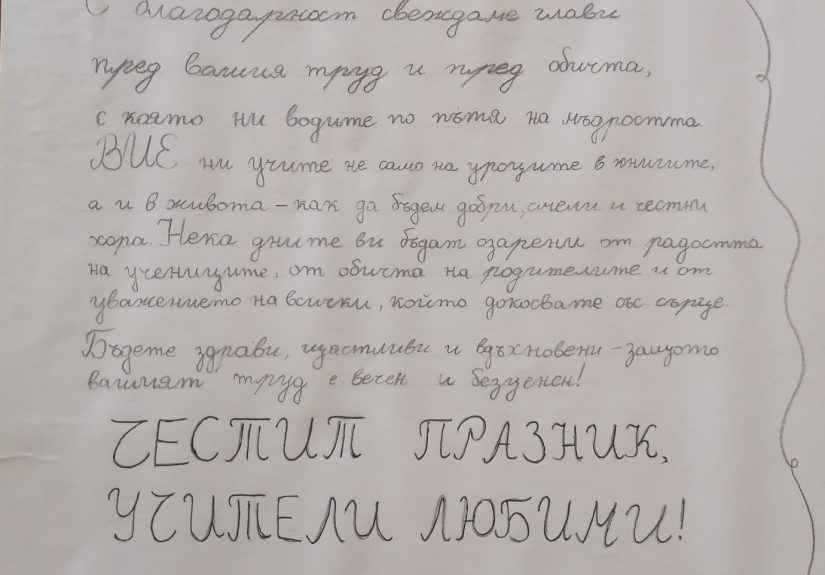 С благодарност свеждаме глави
пред вашия труд и пред обичта,
с която ни водите по пътя на мъдростта.
ВИЕ ни учите не само на уроците в книгите,
а и в живота - как да бъдем добри, смели и честни
хора. Нека дните ви бъдат озарени от радостта
на учениците, от обичта на родителите и от
уважението на всички, който докосвате със сърце.
Бъдете здрави, щастливи и вдъхновени - защото
вашият труд е вечен и безценен!
ЧЕСТИТ ПРАЗНИК,
УЧИТЕЛИ ЛЮБИМИ!